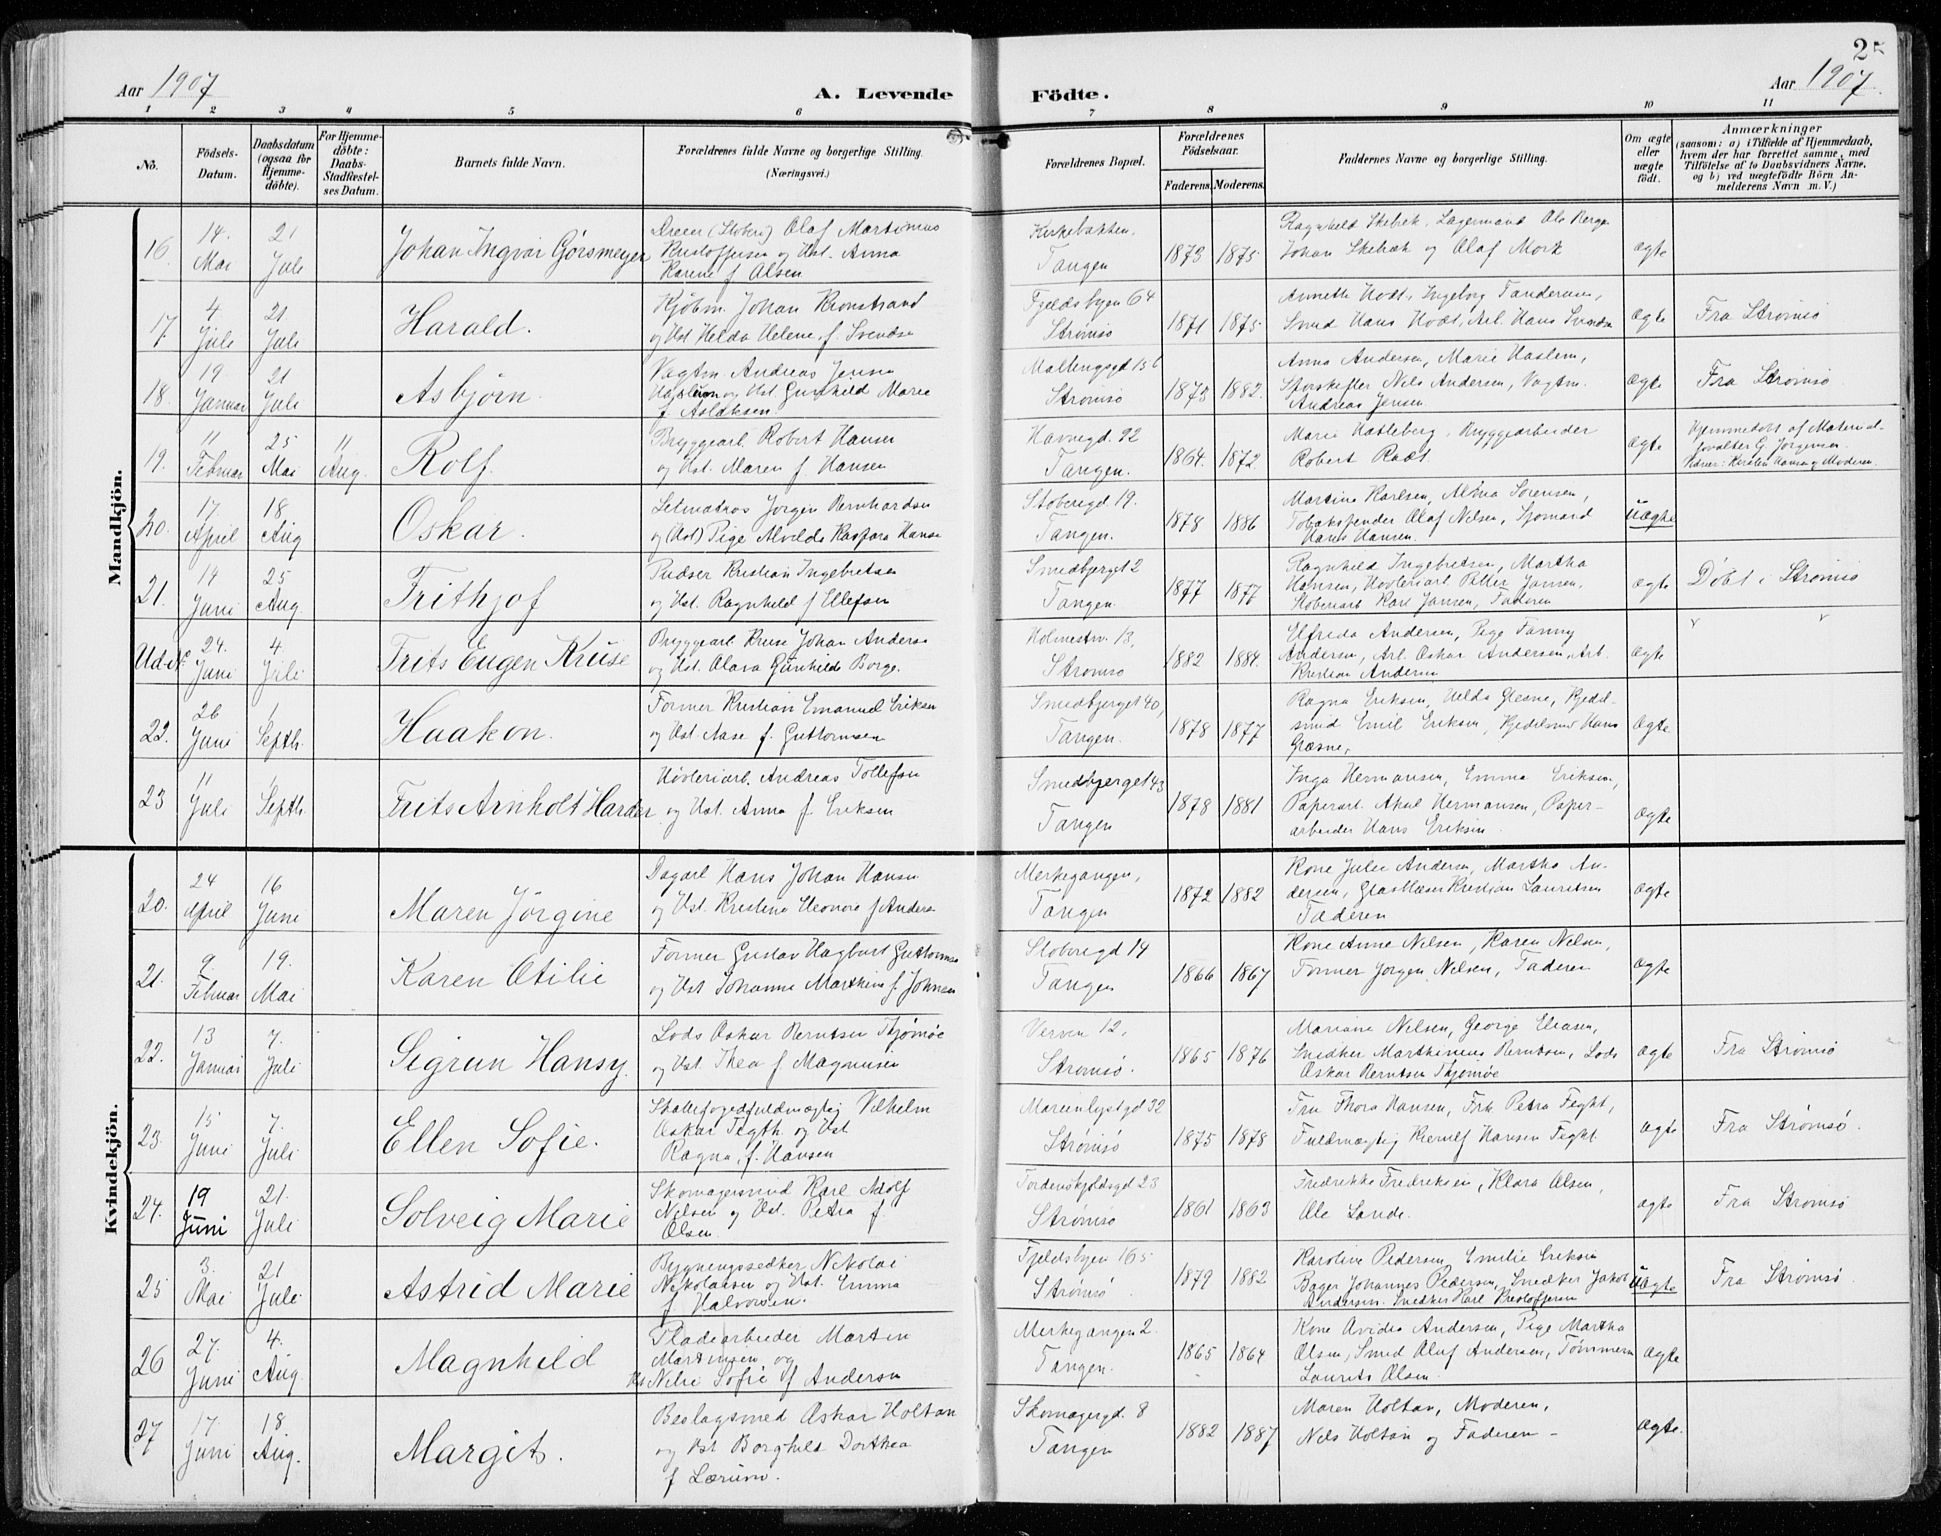 25
Aar 1907
A. Levende Födte.
Aar 1907.
1 2 3 4 5 6 7 8 9 10 11
Nö.
Födsels-
Datum.
Daabsdatum
(ogsaa for
Hjemme-
döbte).
For Hjemme-
döbte:
Daabs-
Stadfæstel-
ses Datum.
Barnets fulde Navn.
Forældrenes fulde Navne og borgerlige Stilling.
(Næringsvei.)
Forældrenes Bopæl.
Forældrenes
Födselsaar.
Faderens. Moderens.
Faddernes Navne og borgerlige Stilling.
Om ægte
eller
uægte
födt.
Anmærkninger
(saasom: a) i Tilfælde af Hjemmedaab,
hvem der har forrettet samme, med
Tilföielse af to Daabsvidners Navne,
og b) ved uægtefödte Börn An-
melderens Navn m. V.)
Mandkjön.
16. 14. Mai 21 Juli
Johan Ingvar Gørsmeyer
Dreier (Støberi) Olaf Martinius
Kristoffersen og Hst. Anna
Karene f. Olsen
Kirkebakken,
Tangen
1873 1875
Ragnhild Skebæk, Lagermand Ole Berger
Johan Skebæk og Olaf Mork
ægte
17. 4. Juli 21 Juli
Harald.
Kjøbm. Johan Kronstrand
og Hst Helda Helene, f. Svends
Fjeldsbyen 64
Strømsø
1871 1875
Annette Hodt, Ingeborg Tandersen,
Smed Hans Hodt, Arb. Hans Svendsen
ægte
Fra Strømsø
18. 19 Januar 21 Juli
Asbjørn.
Vagtm. Andreas Jensen
Haslem og Hst. Gunhild Marie
f. Aslaksen
Maltengsgd 156
Strømsø
1873 1882.
Anna Andersen, Marie Haslem,
Sporskifter Nils Andersen, Vagtm.
Andreas Jensen.
ægte
Fra Strømsø
19. 11 Februar 25 Mai 11 Aug.
Rolf.
Bryggearb. Robert Hansen
og Hst. Maren f. Hansen
Havnegd. 92
Tangen.
1864. 1872
Marie Hatleberg, Bryggearbeider
Robert Rødt
ægte
Hjemmedøbt af Material-
forvalter G. Jørgensen
Vidner: Kirsten Hansen og Moderen.
20. 17 April 18 Aug
Oskar.
Letmatros Jørgen Bernhardsen
og (Hst) Pige Alvilde Kaspara Hanse
Støberigd 19.
Tangen.
1878 1886
Martine Karlsen, Alma Sørensen,
Tobakspinder Olaf Nilsen, Sjømand
Hans Hansen.
uægte
21. 14 Juni 25 Aug
Frithjof
Pudser Kristian Ingebretsen
og Hst. Ragnhild f Ellefsen
Smedbjerget 2
Tangen.
1877 1877
Ragnhild Ingebretsen, Martha
Hansen, Høvleriarb. Petter Jansen,
Støberiarb Karl Jansen, Faderen
ægte
Døbt i Strømsø
Ud.N. 24. Juni 4. Juli
Frits Eugen Kruse
Bryggearb. Kruse Johan Anderse
og Hst. Olava Gunhilde Borge.
Holmestrv. 13,
Strømsø
1882 1884.
Elfrida Andersen, Pige Fanny
Andersen, Arb. Oskar Andersen, Arb.
Kristian Andersen
ægte
22. 26 Juni 1 Septb.
Haakon.
Former Kristian Emanuel Eriksen
og Hst. Aase f. Guttormsen
Smedbjerget 40,
Tangen.
1878 1877
Ragna Eriksen, Helda Græsne, Kjedel-
smed Emil Eriksen, Kjedelsmed Hans
Græsne,
ægte
23 11 Juli 1 Septb.
Frits Arnholt Harder
Høvleriarb. Andreas Tollefsen
og Hst. Anna f. Eriksen
Smedbjerget 43
Tangen
1878 1881
Inga Hermansen, Emma Eriksen,
Papirarb. Aksel Hermansen, Papir-
arbeider Hans Eriksen.
ægte
Kvindekjön.
20. 24 April 16 Juni
Maren Jørgine
Dagarb Hans Johan Hansen
og Hst. Kristine Eleonore f Anders
Merkegangen,
Tangen
1872 1882
Kone Julie Andersen, Martha An-
dersen, Glasblæser Kristian Lauritsen
Faderen
ægte
21. 9. Februar 19. Mai
Karen Otilie
Former Gustav Hagbart Guttormsen
og Hst Johanne Marthine f. Johnsen
Støberigd 14
Tangen
1866 1867
Kone Anne Nilsen, Karen Nilsen,
Former Jørgen Nilsen, Faderen
ægte
22. 13 Januar 7. Juli
Sigrun Hansy.
Lods Oskar Berntsen Thjømøe
og Hst. Thea f Magnusen
Verven 12.
Strømsø.
1865 1876
Mariane Nilsen, George Eliasen,
Snedker Marthinius Berntsen, Lods
Oskar Berntsen Thjømøe
ægte
Fra Strømsø
23. 15 Juni 7. Juli
Ellen Sofie.
Skattefogedfuldmægtig Vilhelm
Oskar Fegth og Hst
Ragna, f. Hansen
Mareinlystgd 32
Strømsø
1875 1878
Fru Thora Hansen, Frk. Petra Feght,
Fuldmægtig Kierulf Hansen Feght.
ægte
Fra Strømsø.
24. 19 Juni 21. Juli
Solveig Marie
Skomagersvend Karl Adolf
Nilsen og Hst. Petra f.
Olsen.
Tordenskjoldsgd 23
Strømsø
1861 1863
Fredrikke Fredriksen, Klara Olsen,
Ole Lande.
ægte
Fra Strømsø
25 3. Mai 21 Juli
Astrid Marie
Bygningssnedker Nikolai
Nikolaisen og Hst. Emma
f Halvorsen.
Fjeldsbyen 165
Strømsø.
1879 1882
Karoline Pedersen, Emilie Eriksen
Bager Johannes Pedersen, Snedker Jakob
Andersen. Snedker Karl Kristoffersen
uægte
Fra Strømsø
26 27. Juni 4. Aug.
Magnhild
Pladearbeider Martin
Martinsen og
Hst Nilie Sofie f Andersen
Merkegangen 2.
Tangen.
1865 1864
Kone Avidia Andersen, Pige Martha
Olsen, Smed Oluf Andersen, Tømmerm
Laurits Olsen.
ægte
27 17. Juni 18 Aug.
Margit.
Beslagsmed Oskar Holtan
og Hst Borghild Dorthea
f Lærum.
Skomagergd. 8
Tangen
1882 1887
Maren Holtan, Moderen,
Nils Holtan og Faderen –
ægte.